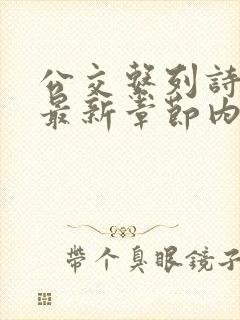 公交繫列詩
最新章節內
帶个臭眼鏡子